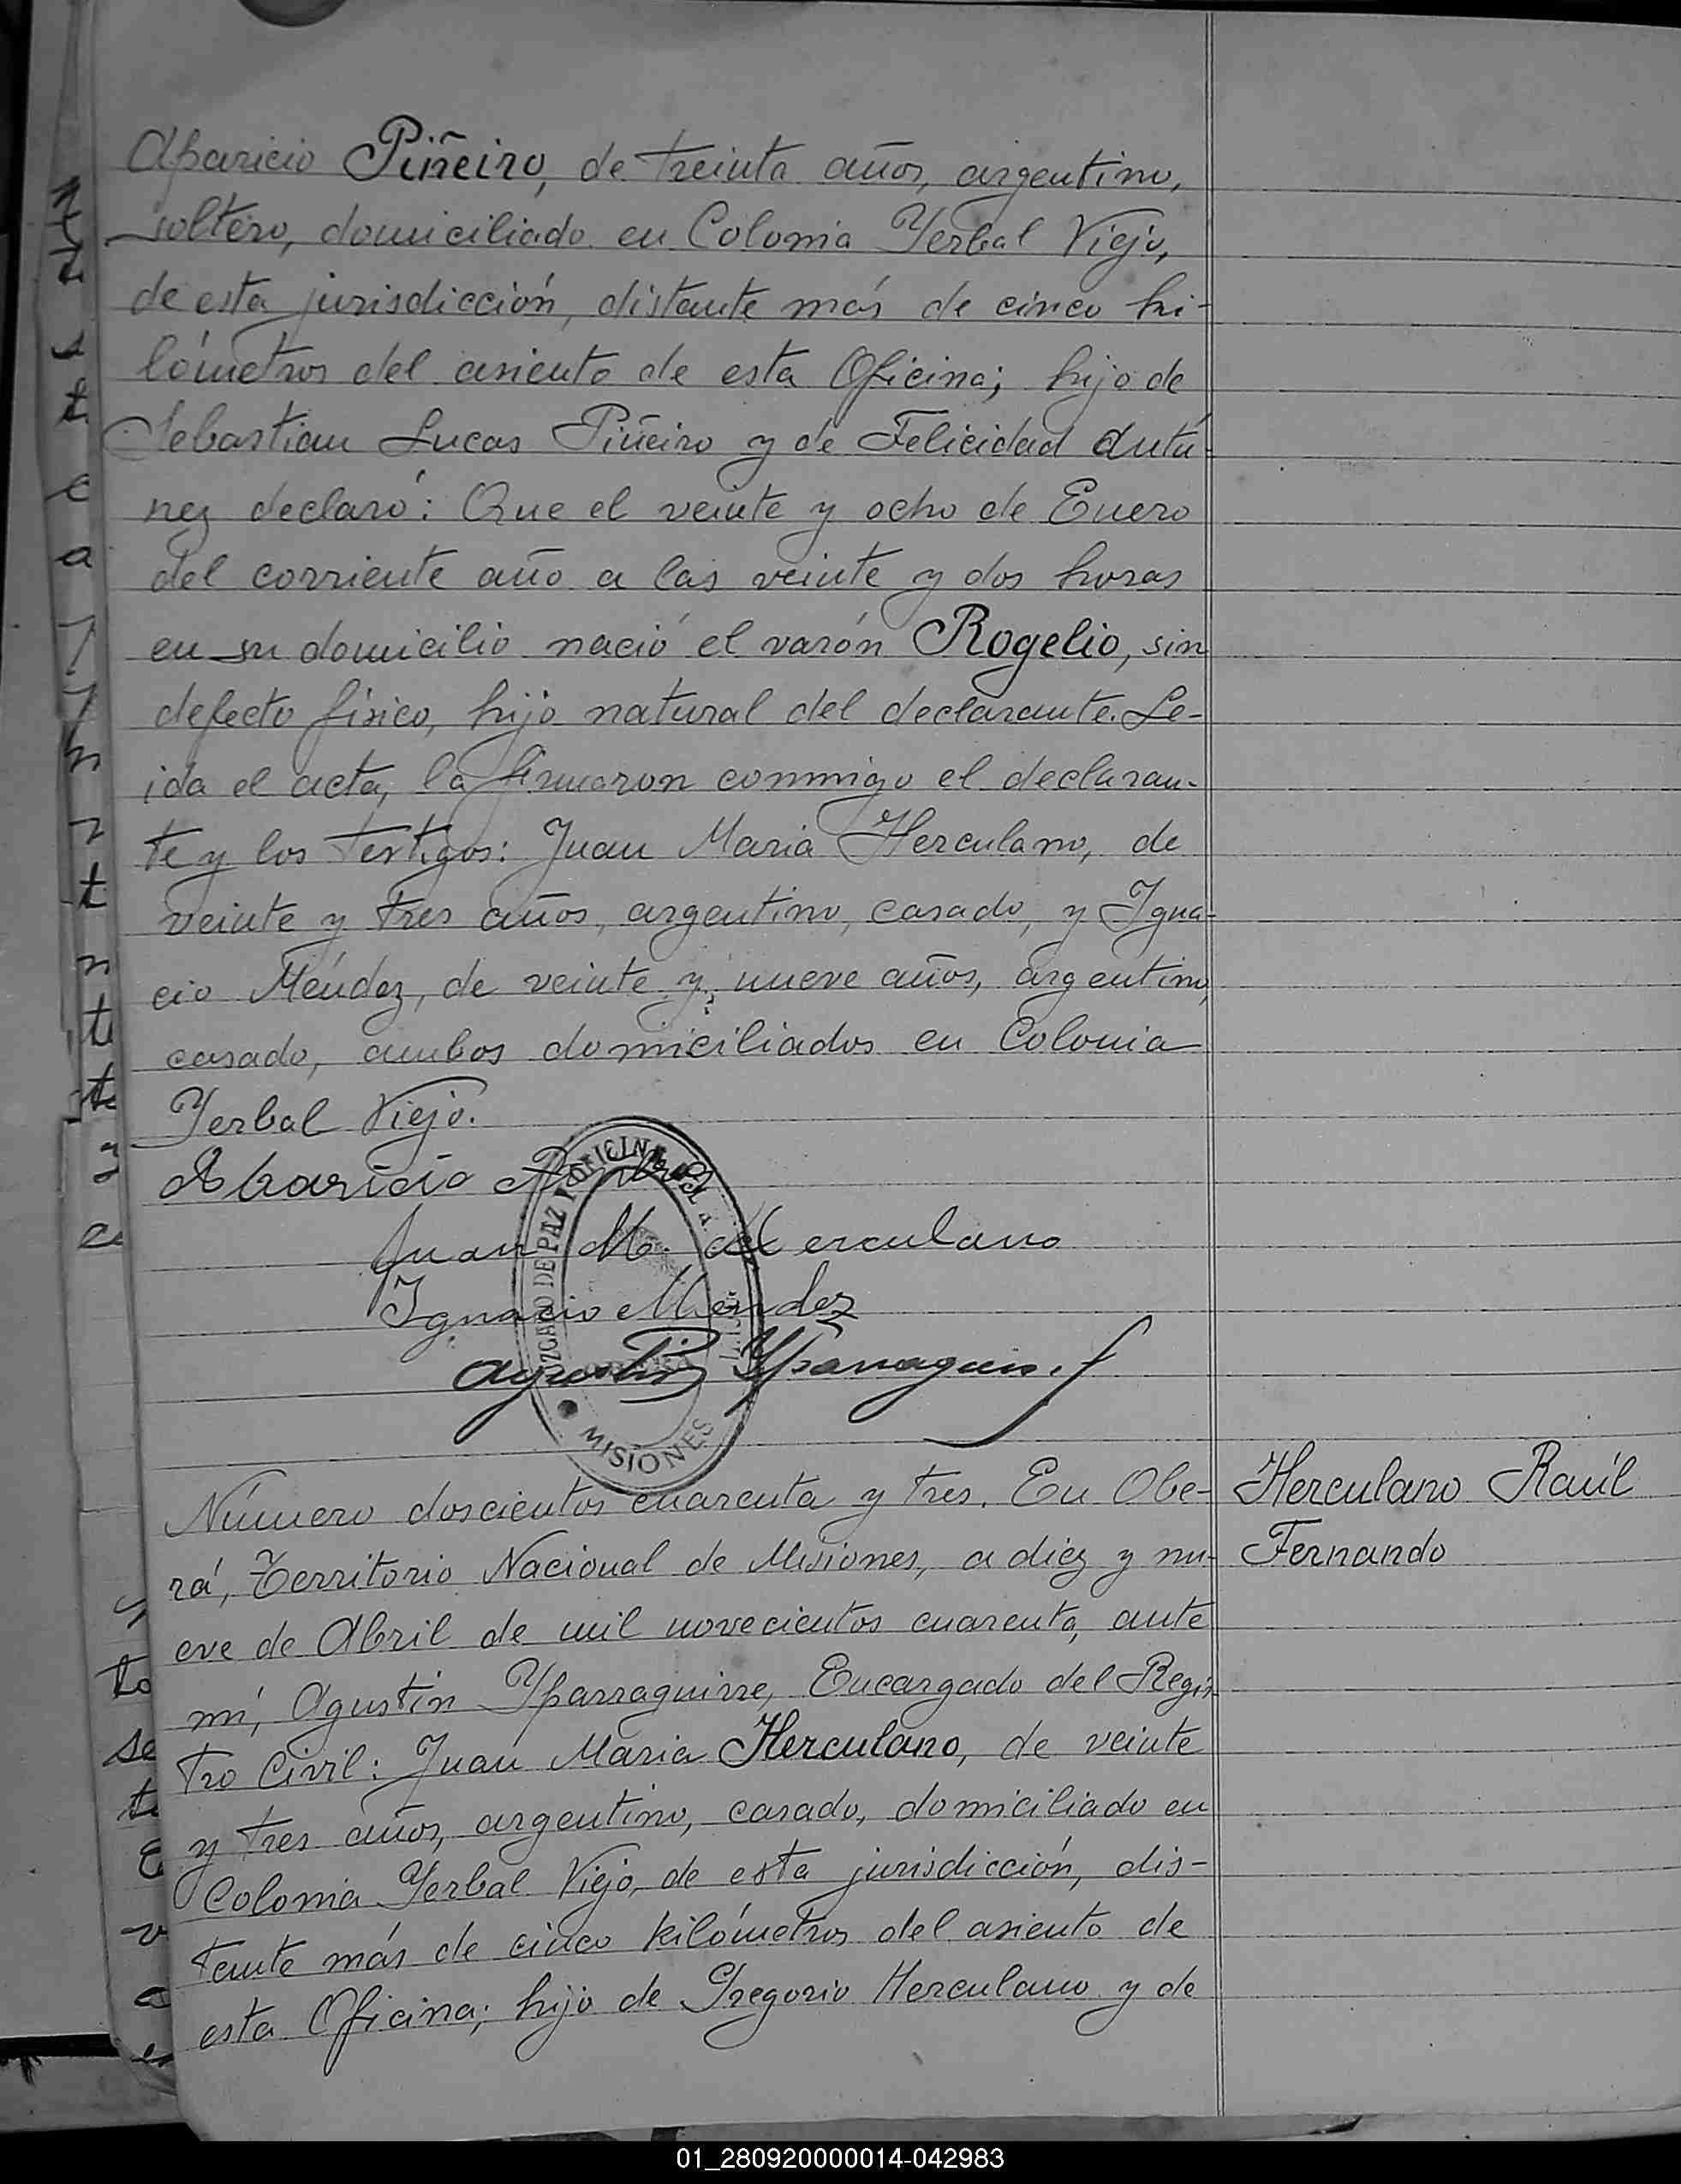 Aparicio Piñeiro, de treinta años, argentino,
soltero, domiciliado en Colonia Yerbal Viejo,
de esta jurisdicción, distante más de cinco ki-
lómetros del asiento de esta Oficina; hijo de
Sebastian Lucas Piñeiro y de Felicidad Antú-
nez declaró: Que el veinte y ocho de Enero
del corriente año a las veinte y dos horas
en su domicilio nació el varón Rogelio, sin
defecto físico, hijo natural del declarante. Le-
ida el acta, la firmaron conmigo el declaran-
te y los testigos: Juan Maria Herculano, de
veinte y tres años, argentino, casado, y Igna-
cio Méndez, de veinte y nueve años, argentino,
casado, ambos domiciliados en Colonia
Yerbal Viejo.
Aparicio
Juan M. Herculano
Ignacio Mendez
Agustin Yparraguirre
JUZGADO DE PAZ Y OFICINA
MISIONES
Número doscientos cuarenta y tres. En Obe-
rá, Territorio Nacional de Misiones, a diez y nu-
eve de Abril de mil novecientos cuarenta, ante
mi, Agustín Yparraguirre, Encargado del Regis-
tro Civil: Juan Maria Herculano, de veinte
y tres años, argentino, casado, domiciliado en
Colonia Yerbal Viejo, de esta jurisdicción, dis-
tante más de cinco kilómetros del asiento de
esta Oficina; hijo de Gregorio Herculano y de
Herculano Raúl
Fernando
01_280920000014-042983